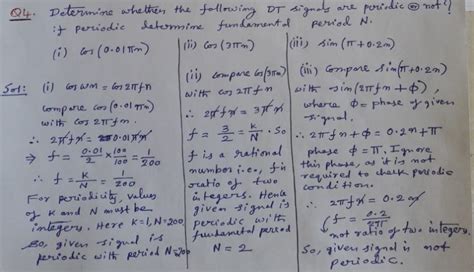 Q4. Determine whether the following DT signals are periodic or not?
if periodic determine fundamental period N.
(i) Cos (0.01πn)
(ii) Cos (3πn)
(iii) sin (π+0.2n)
Sol: (i) Cos ωn = Cos 2πfn
compare Cos (0.01πn)
with Cos 2πfn.
∴ 2πfn = 0.01πn
⇒ f = 0.01/2 × 100/100 = 1/200
f = K/N = 1/200
For periodicity, values
of K and N must be
integers. Here K=1, N=200
So, given signal is
periodic with period N=200
(ii) compare Cos(3πn)
with Cos 2πfn
∴ 2πfn = 3πn
f = 3/2 = K/N. So
f is a rational
number i.e., f is
ratio of two
integers. Hence
given signal is
periodic with
fundamental period
N = 2
(iii) Compare sin(π+0.2n)
with sin(2πfn + ϕ),
where ϕ = phase of given
signal.
∴ 2πfn + ϕ = 0.2n + π
phase ϕ = π. Ignore
this phase, as it is not
required to check periodic
condition.
∴ 2πfn = 0.2n
f = 0.2/2π
not ratio of two integers.
So, given signal is not
periodic.